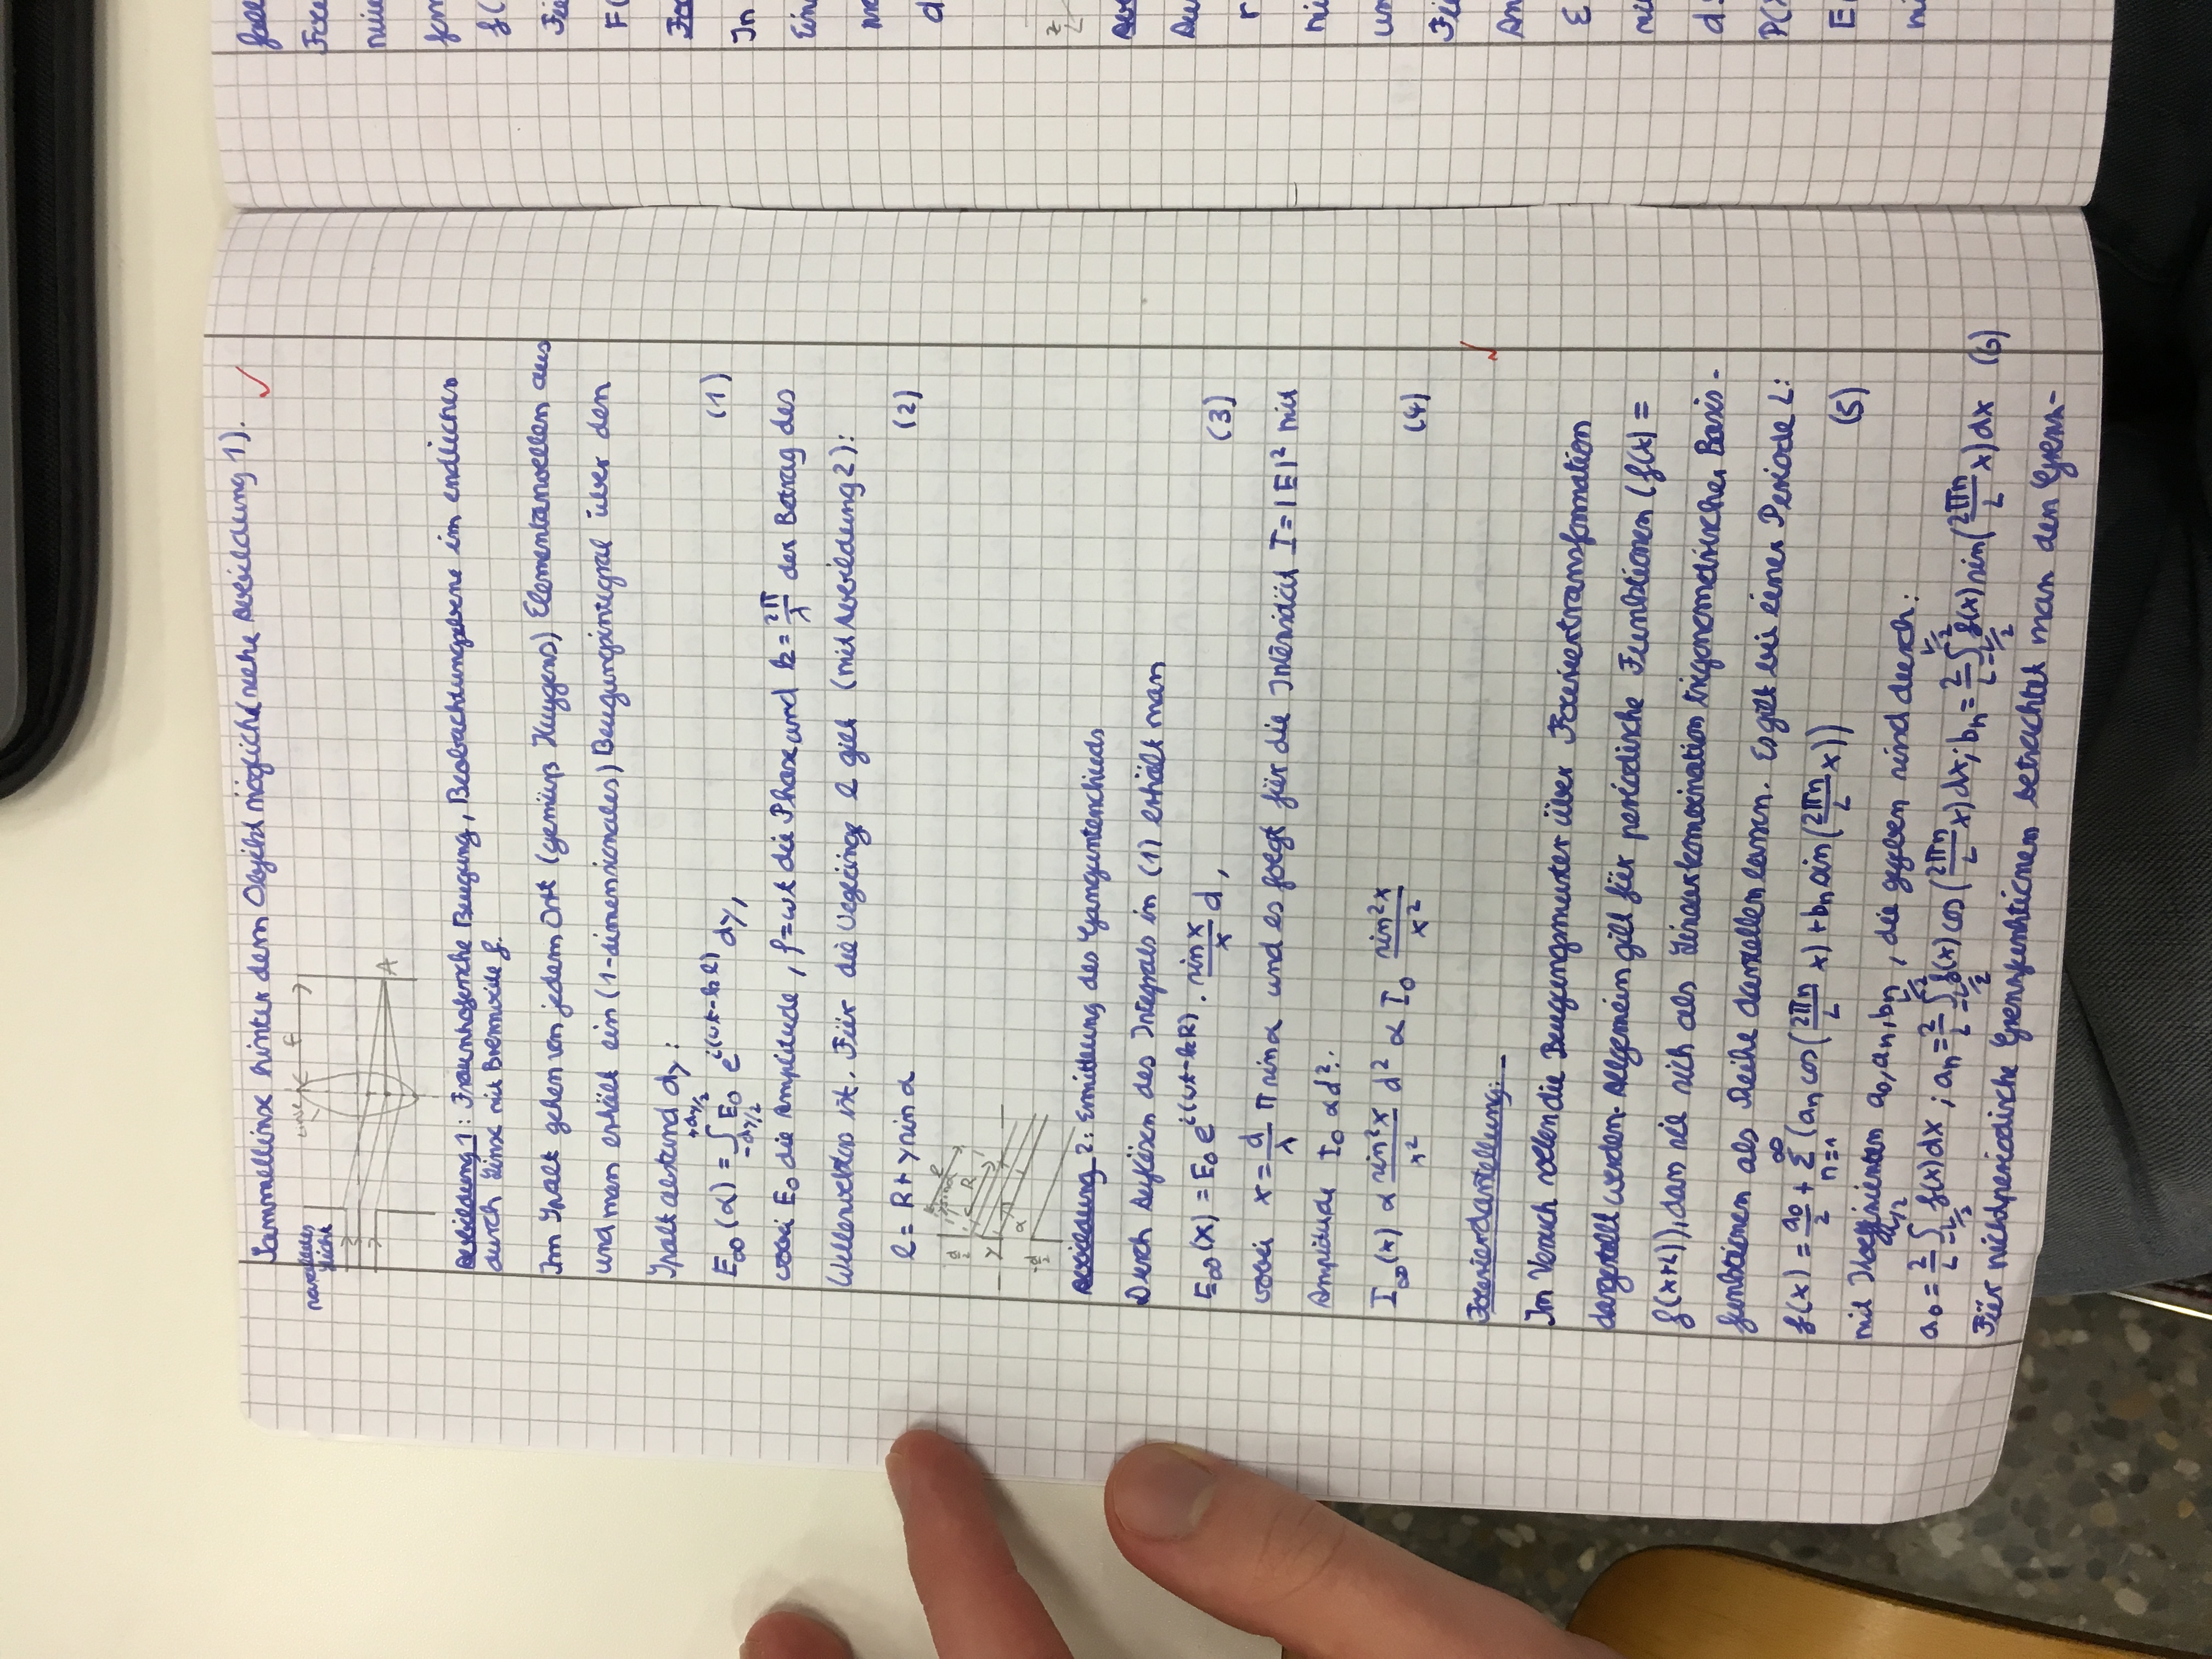 Sammellinse hinter dem Objekt möglich (siehe Abbildung 1).
paralleles
Licht
Linse
f
A
Abbildung 1: Fraunhofersche Beugung, Beobachtungsebene im endlichen
durch Linse mit Brennweite f.
Im Spalt gehen von jedem Ort (gemäß Huygens) Elementarwellen aus
und man erhält ein (1-dimensionales) Beugungsintegral über den
Spaltabstand dy:
E∞(α) = ∫_{-dy/2}^{+dy/2} E₀ e^{i(ωt-kl)} dy, (1)
wobei E₀ die Amplitude, φ=ωt die Phase und k = 2π/λ der Betrag des
Wellenvektors ist. Für die Weglänge l gilt (mit Abbildung 2):
l = R + y sin α (2)
d/2
l
R
y
α
-d/2
Abbildung 2: Ermittlung des Gangunterschieds
Durch Auflösen des Integrals in (1) erhält man
E∞(x) = E₀ e^{i(ωt-kR)} · sin x / x d, (3)
wobei x = d/λ π sin α und es folgt für die Intensität I = |E|² mit
Amplitude I₀ ∝ d²:
I∞(x) ∝ sin²x / x² d² ∝ I₀ sin²x / x² (4)
Fourierdarstellung:
Im Versuch sollen die Beugungsmuster über Fouriertransformation
dargestellt werden. Allgemein gilt für periodische Funktionen (f(x) =
f(x+L)), dass sie sich als Linearkombination trigonometrischer Basis-
funktionen als Reihe darstellen lassen. Es gilt bei einer Periode L:
f(x) = a₀/2 + Σ_{n=1}^{∞} (aₙ cos(2πn/L x) + bₙ sin(2πn/L x)) (5)
mit Koeffizienten a₀, aₙ, bₙ, die gegeben sind durch:
a₀ = 2/L ∫_{-L/2}^{L/2} f(x) dx ; aₙ = 2/L ∫_{-L/2}^{L/2} f(x) cos(2πn/L x) dx; bₙ = 2/L ∫_{-L/2}^{L/2} f(x) sin(2πn/L x) dx (6)
Für nichtperiodische Grenzfunktionen betrachtet man den Grenz-